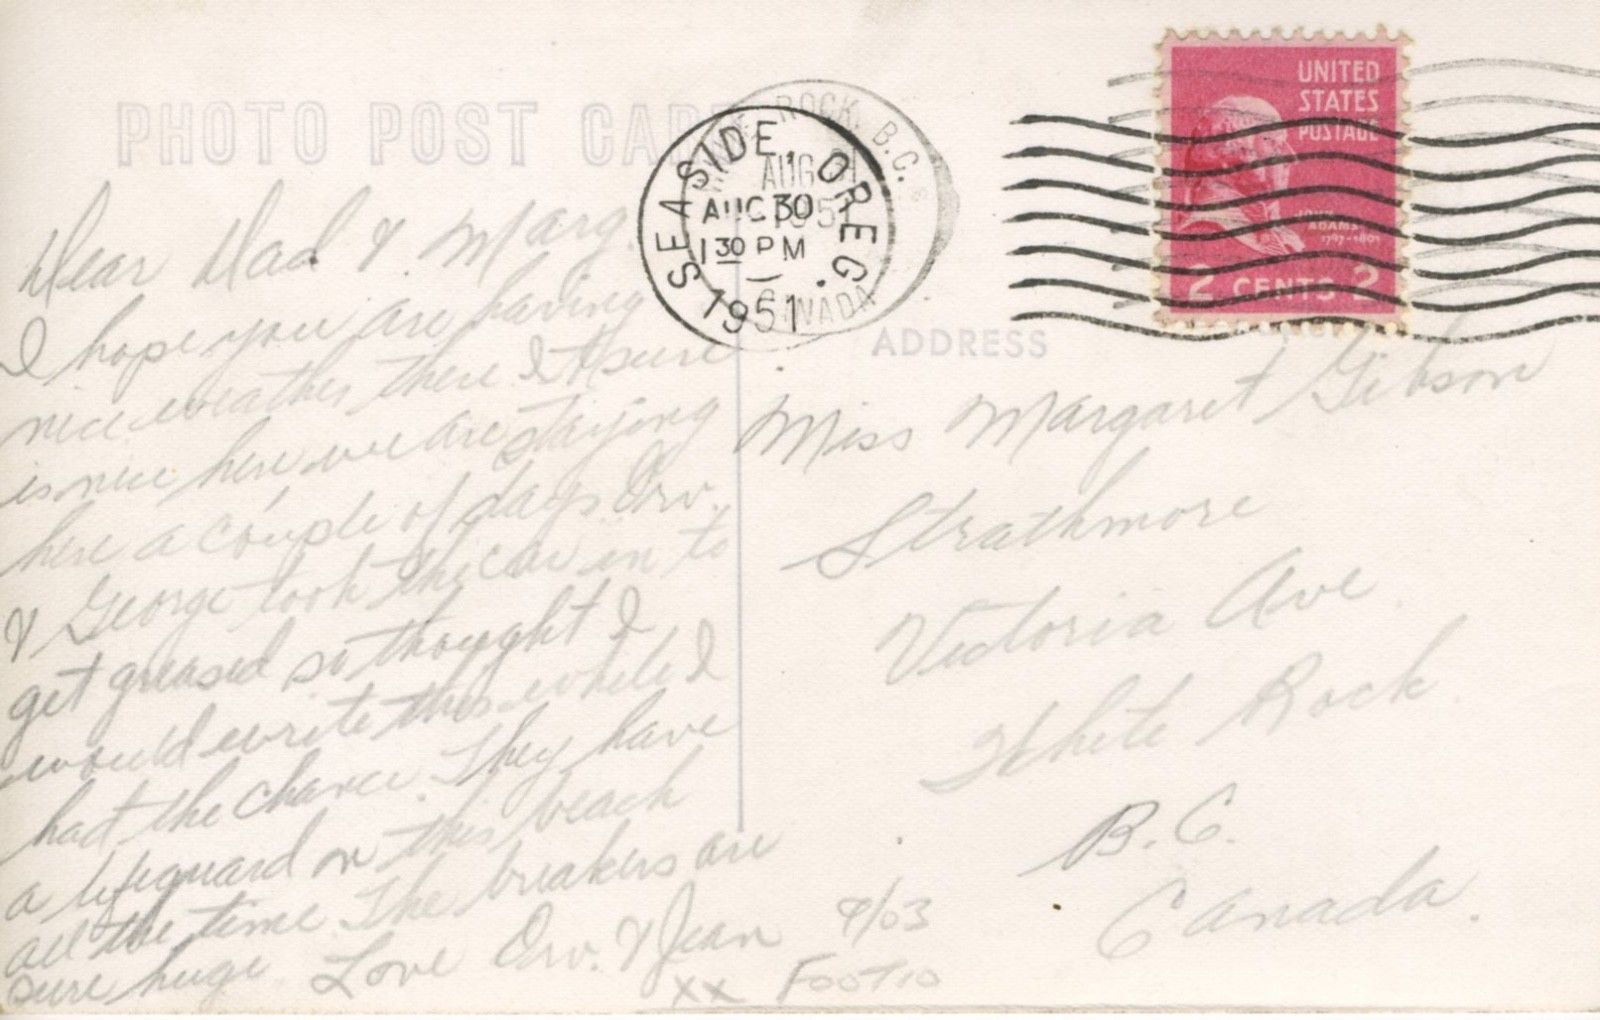 PHOTO POST CARD
Dear Dad & Marg.
I hope you are having
nice weather there. It sure
is nice here. we are staying
here a couple of days Orv.
& George took the car in to
get greased so thought I
would write this while I
had the chance. They have
a lifeguard on this beach
all the time. The breakers are
sure huge. Love Orv. & Jean
xx
9/03
ROCK, B.C.
AUG 31
1951
CANADA
SEASIDE, OREG.
AUG 30
1 30 PM
1951
UNITED
STATES
POSTAGE
JOHN
ADAMS
1797-1801
2 CENTS 2
ADDRESS
Miss Margaret Gibson
Strathmore
Victoria Ave.
White Rock.
B.C.
Canada.